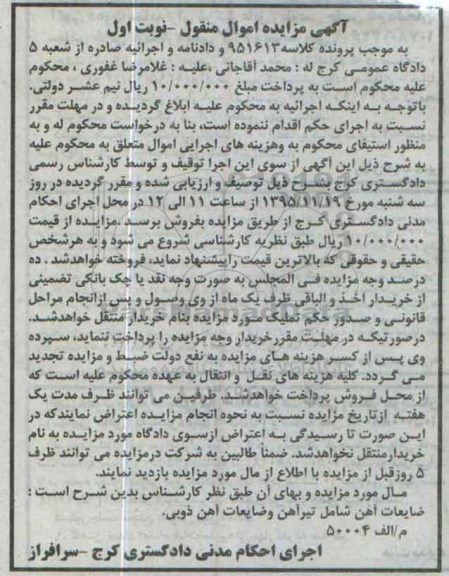 آگهی مزایده اموال منقول -نوبت اول
به موجب پرونده کلاسه۹۵۱۶۱۳ و دادنامه و اجرائیه صادره از شعبه ۵
دادگاه عمومی کرج له : محمد آقاجانی ،علیه : غلامرضا غفوری ، محکوم
علیه محکوم است به پرداخت مبلغ ۱۰/۰۰۰/۰۰۰ ریال نیم عشر دولتی.
باتوجه به اینکه اجرائیه به محکوم علیه ابلاغ گردیده و در مهلت مقرر
نسبت به اجرای حکم اقدام ننموده است، بنا به درخواست محکوم له و به
منظور استیفای محکوم به وهزینه های اجرایی اموال متعلق به محکوم علیه
به شرح ذیل این آگهی از سوی این اجرا توقیف و توسط کارشناس رسمی
دادگستری کرج بشرح ذیل توصیف و ارزیابی شده و مقرر گردیده در روز
سه شنبه مورخ ۱۳۹۵/۱۱/۱۹ از ساعت ۱۱ الی ۱۲ در محل اجرای احکام
مدنی دادگستری کرج از طریق مزایده بفروش برسد .مزایده از قیمت
۱۰/۰۰۰/۰۰۰ ریال طبق نظریه کارشناسی شروع می شود و به هرشخص
حقیقی و حقوقی که بالاترین قیمت راپیشنهاد نماید، فروخته خواهدشد . ده
درصد وجه مزایده فی المجلس به صورت وجه نقد یا چک بانکی تضمینی
از خریدار اخذ و الباقی ظرف یک ماه از وی وصول و پس ازانجام مراحل
قانونی و صدور حکم تملیک مورد مزایده بنام خریدار منتقل خواهدشد.
درصورتیکه در مهلت مقررخریدار وجه مزایده را پرداخت ننماید، سپرده
وی پس از کسر هزینه های مزایده به نفع دولت ضبط و مزایده تجدید
می گردد. کلیه هزینه های نقل و انتقال به عهده محکوم علیه است که
از محل فروش پرداخت خواهدشد. طرفین می توانند ظرف مدت یک
هفته ازتاریخ مزایده نسبت به نحوه انجام مزایده اعتراض نمایندکه در
این صورت تا رسیدگی به اعتراض ازسوی دادگاه مورد مزایده به نام
خریدارمنتقل نخواهدشد. ضمناً طالبین به شرکت درمزایده می توانند ظرف
۵ روزقبل از مزایده با اطلاع از مال مورد مزایده بازدید نمایند.
مال مورد مزایده و بهای آن طبق نظر کارشناس بدین شرح است :
ضایعات آهن شامل تیرآهن وضایعات آهن ذوبی.
م/الف ۵۰۰۰۴
اجرای احکام مدنی دادگستری کرج -سرافراز